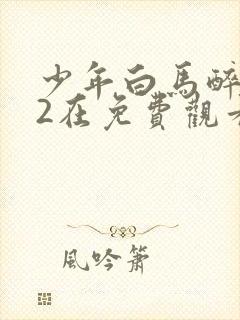 少年白馬醉
2在免費觀看
風吟簫